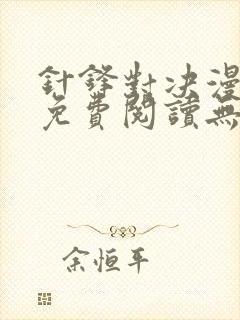 針鋒對決漫
免費閱讀無
余恒平